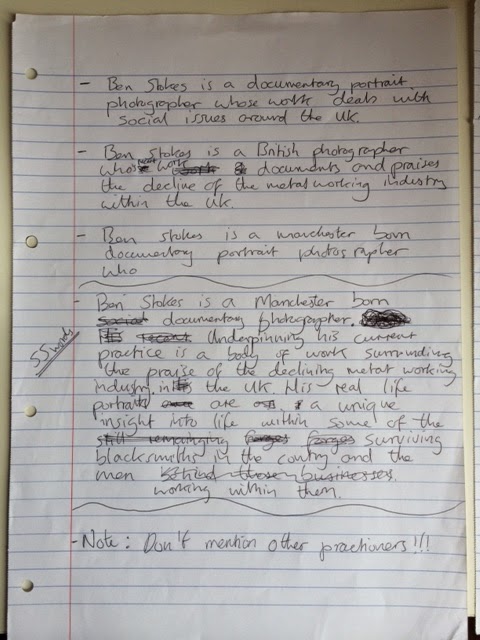 - Ben Stokes is a documentary portrait
photographer whose work deals with
social issues around the UK.
- Ben Stokes is a British photographer
work documents and praises
the decline of the metal working industry
within the UK.
- Ben Stokes is a manchester born
documentary portrait photographer
who
- Ben Stokes is a Manchester born
social documentary photographer.
His recent Underpinning his current
practice is a body of work surrounding
the praise of the declining metal working
industry in the UK. His real life
portraits are a unique
insight into life within some of the
still remaining forges forges surviving
blacksmiths in the country and the
men behind these businesses.
working within them.
55 words
- Note: Don't mention other practioners!!!